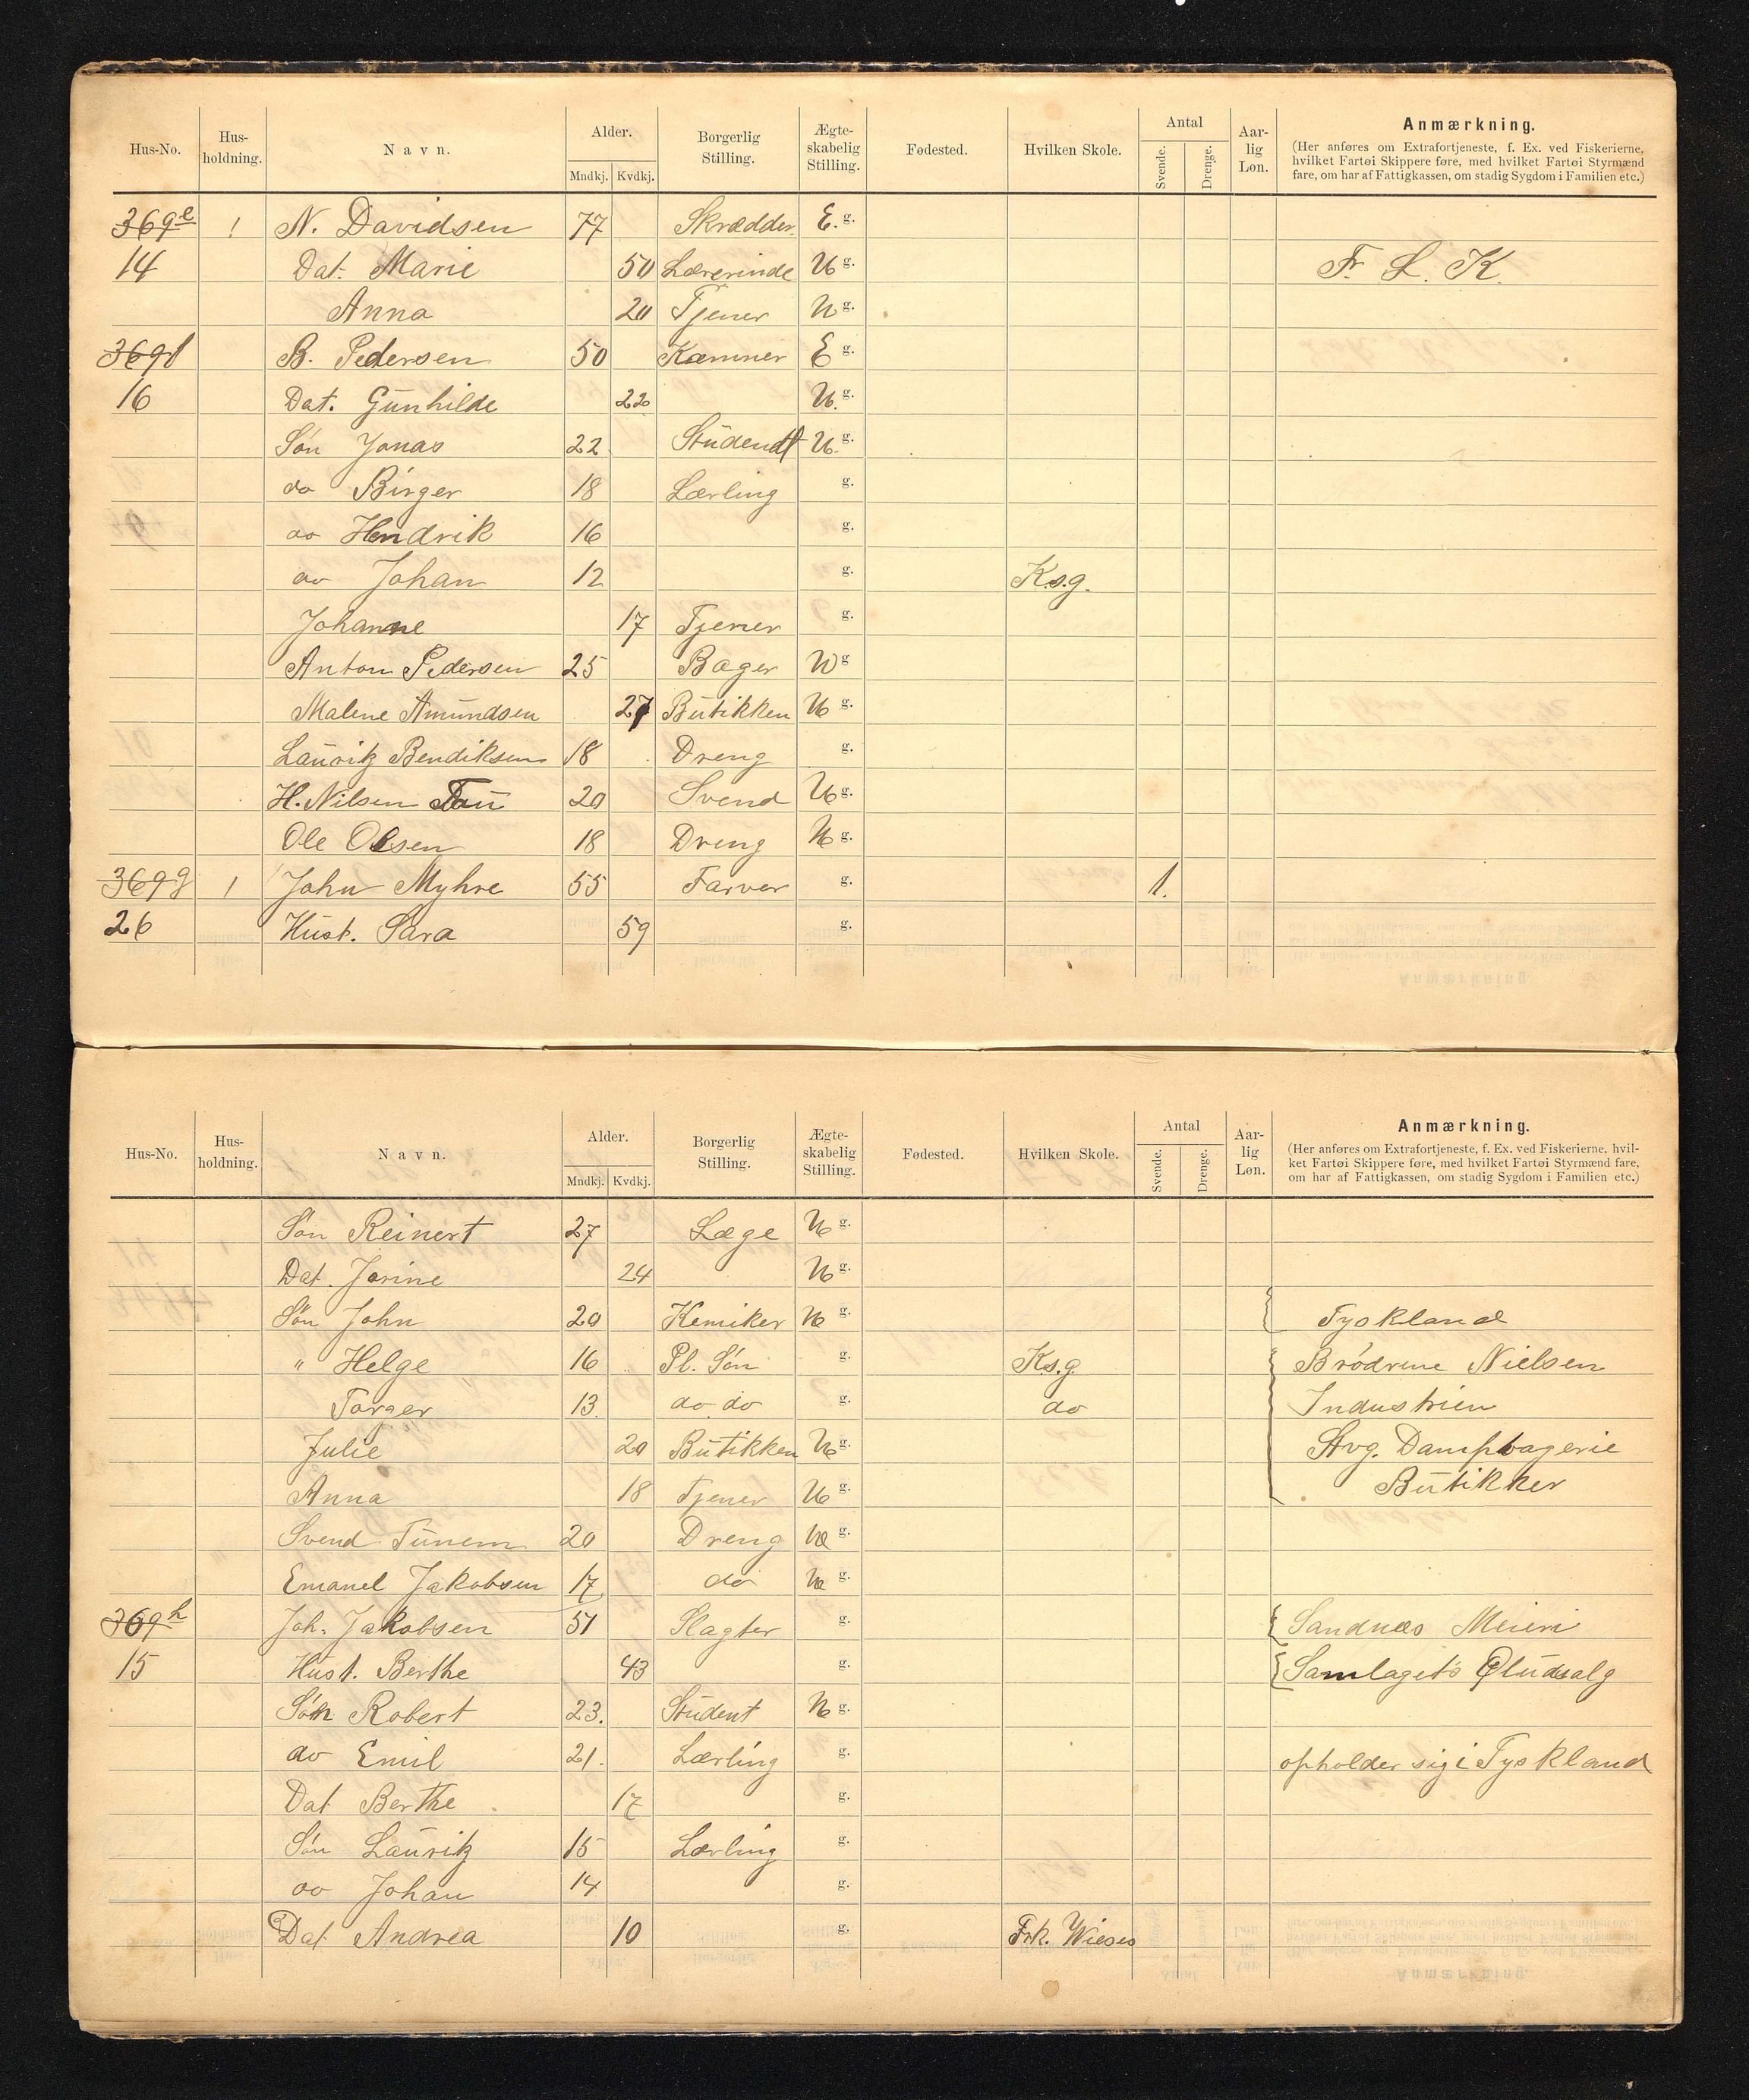 Hus-No. Hus-holdning. Navn. Alder. Mndkj. Kvdkj. Borgerlig Stilling. Ægte-skabelig Stilling. Fødested. Hvilken Skole. Antal Svende. Drenge. Aar-lig Løn. Anmærkning.
(Her anføres om Extrafortjeneste, f. Ex. ved Fiskerierne,
hvilket Fartøi Skippere føre, med hvilket Fartøi Styrmænd
fare, om har af Fattigkassen, om stadig Sygdom i Familien etc.)
369e 1 N. Davidsen 77 Skrædder E. g.
14 Dat. Marie 50 Lærerinde U g. Fr. L. K.
Anna 20 Tjener U g.
369f B. Pedersen 50 Kæmner E g.
16 Dat. Gunhilde 22 U. g.
Søn Jonas 22 Studendt U. g.
do Birger 18 Lærling g.
do Hendrik 16 g.
do Johan 12 g. K.s.g.
Johanne 17 Tjener g.
Anton Pedersen 25 Bager U g
Malene Amundsen 27 Butikken U g.
Lauritz Bendiksen 18 Dreng g.
H. Nilsen Tau 20 Svend U g.
Ole Olsen 18 Dreng U g.
369g 1 John Myhre 55 Farver g. 1.
26 Hust. Sara 59 g.
Hus-No. Hus-holdning. Navn. Alder. Mndkj. Kvdkj. Borgerlig Stilling. Ægte-skabelig Stilling. Fødested. Hvilken Skole. Antal Svende. Drenge. Aar-lig Løn. Anmærkning.
(Her anføres om Extrafortjeneste, f. Ex. ved Fiskerierne, hvil-
ket Fartøi Skippere føre, med hvilket Fartøi Styrmænd fare,
om har af Fattigkassen, om stadig Sygdom i Familien etc.)
Søn Reinert 27 Læge U g.
Dat. Jorine 24 U g.
Søn John 20 Kemiker U g. Tyskland
" Helge 16 Pl. Søn g. K.s.g. Brødrene Nielsen
Torger 13. do do g. do Industrien
Julie 20 Butikken U g. Stvg. Dampbagerie
Anna 18 Tjener U g. Butikker
Svend Tunem 20 Dreng U g.
Emanel Jakobsen 17 do U g.
369h Joh. Jakobsen 51 Slagter g. Sandnæs Meieri
15 Hust. Berthe 43 g. Samlagets Øludsalg
Søn Robert 23. Student U g.
do Emil 21. Lærling g. opholder sig i Tyskland
Dat Berthe 17 g.
Søn Lauritz 15 Lærling g.
do Johan 14 g.
Dat Andrea 10 g. Frk. Wieses